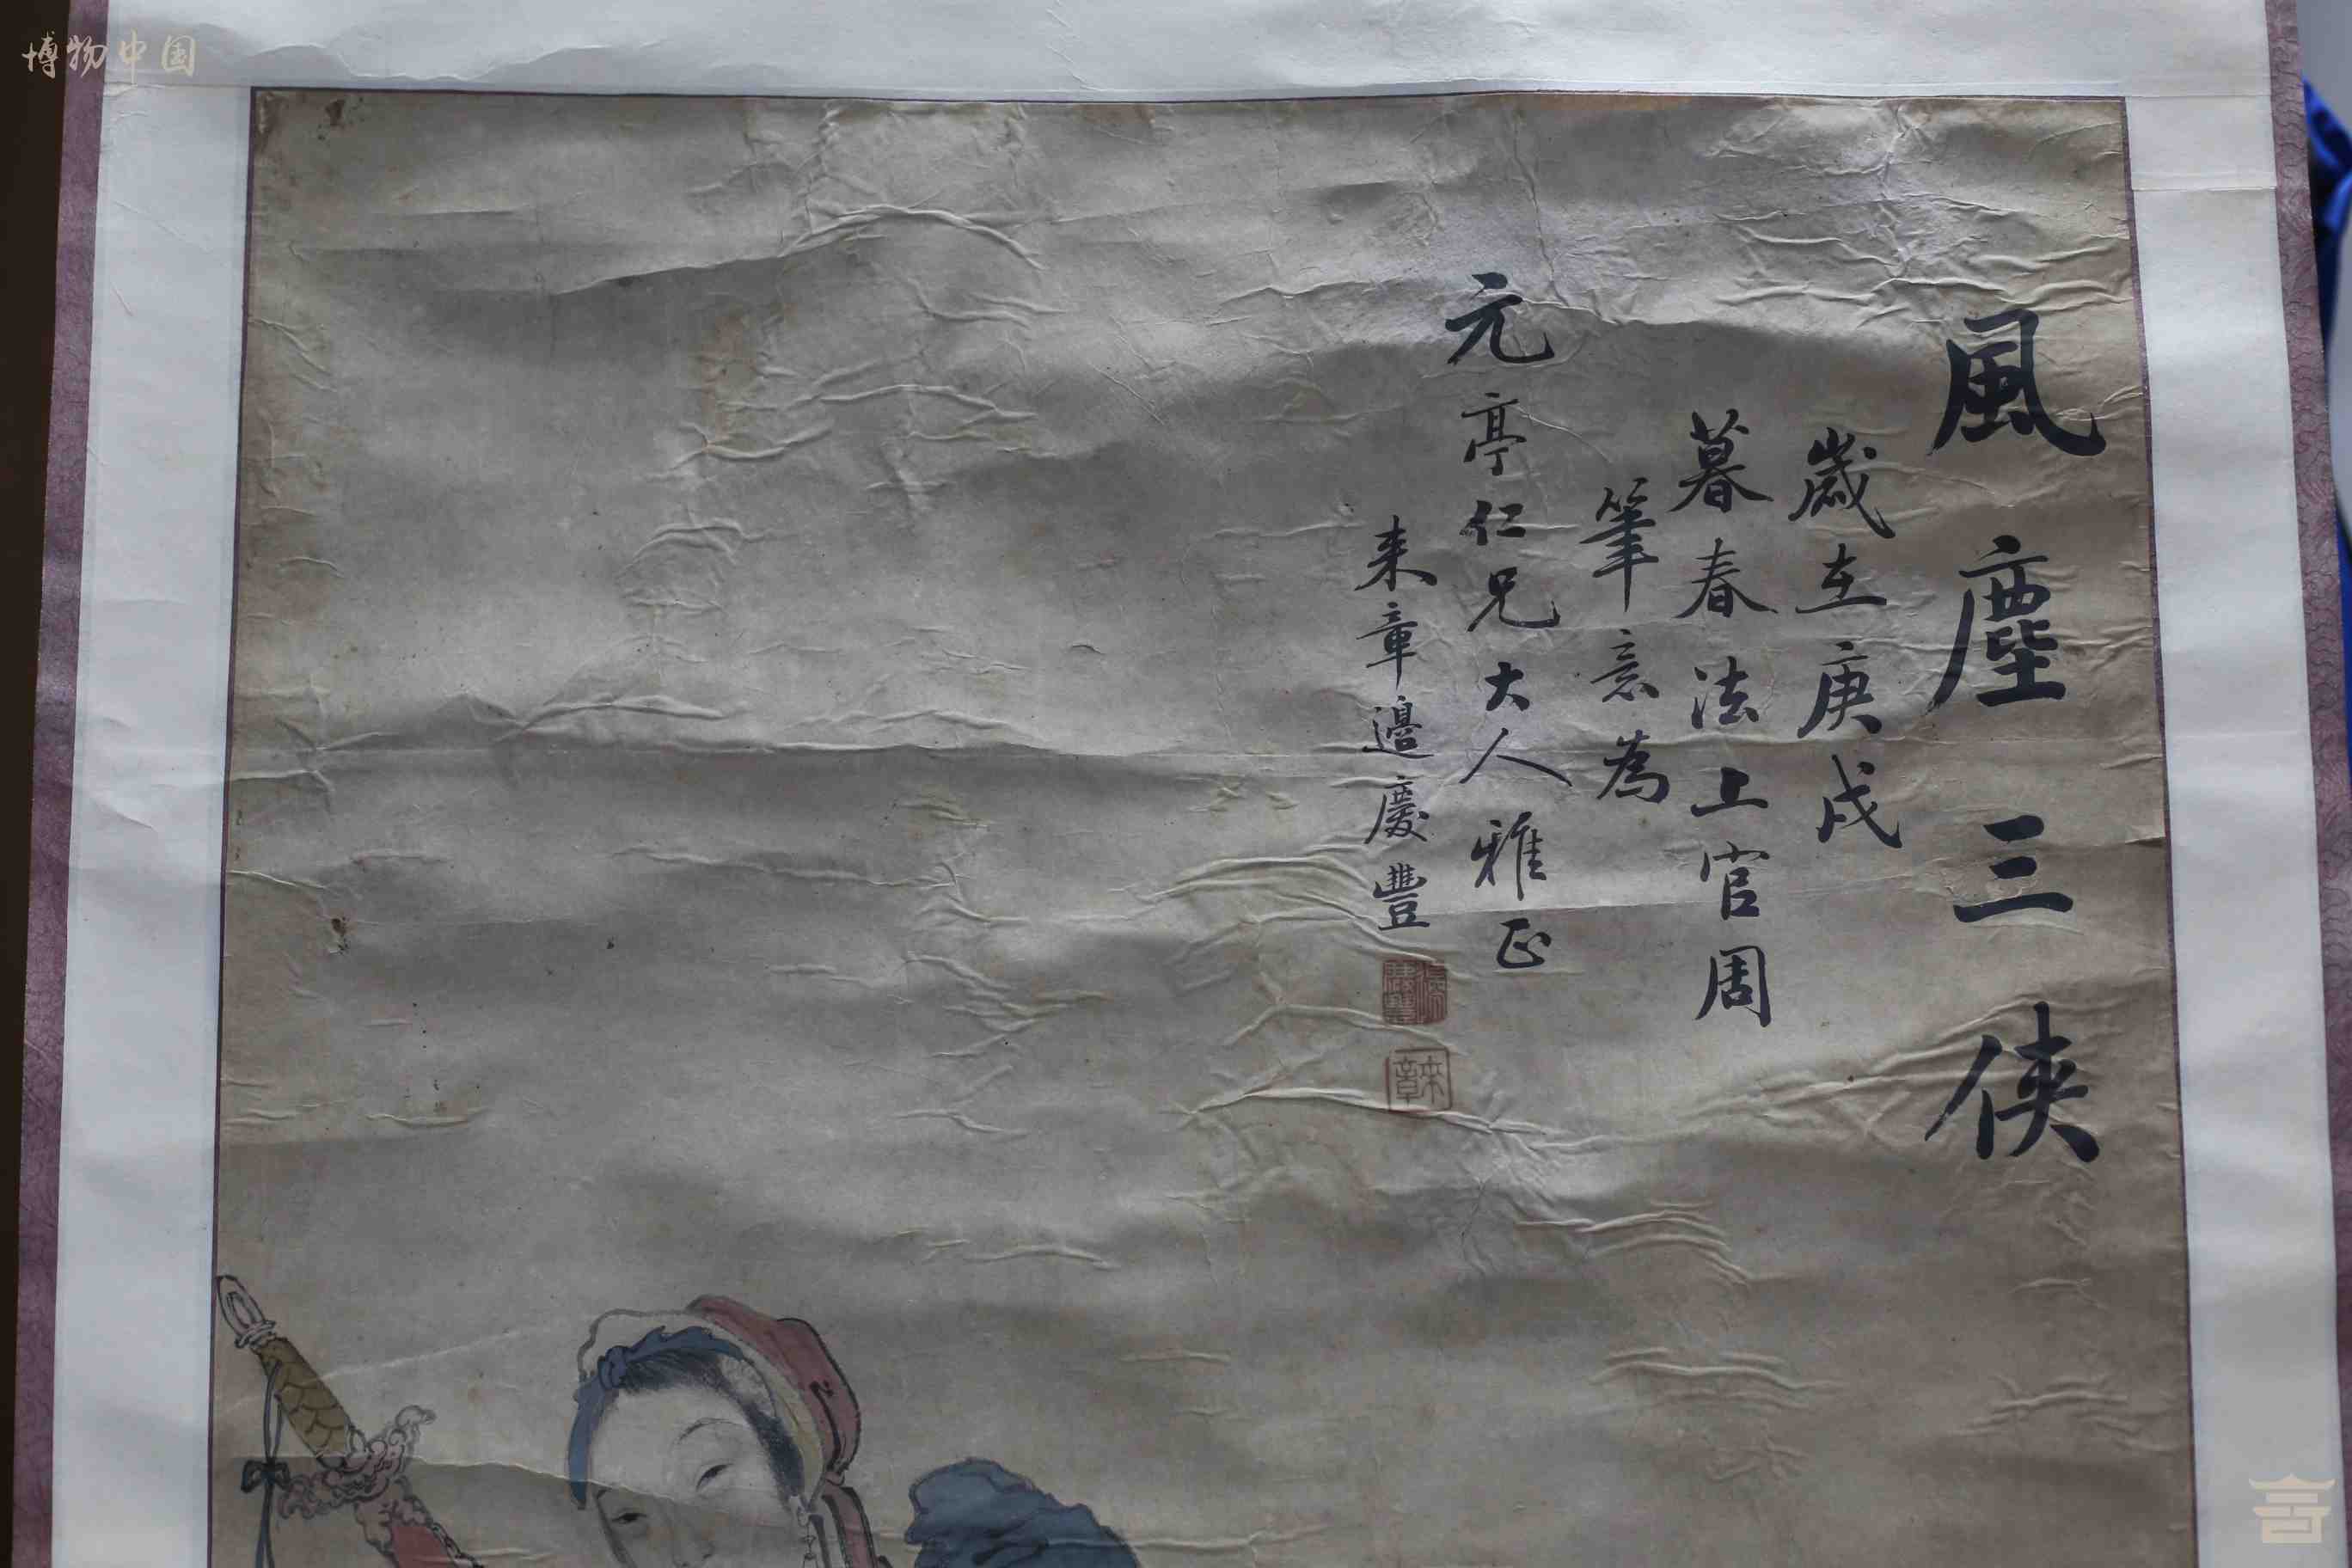 博物中国
風塵三俠
歲在庚戌
暮春法上官周
筆意為
元亭仁兄大人雅正
来章邉慶豐
来章